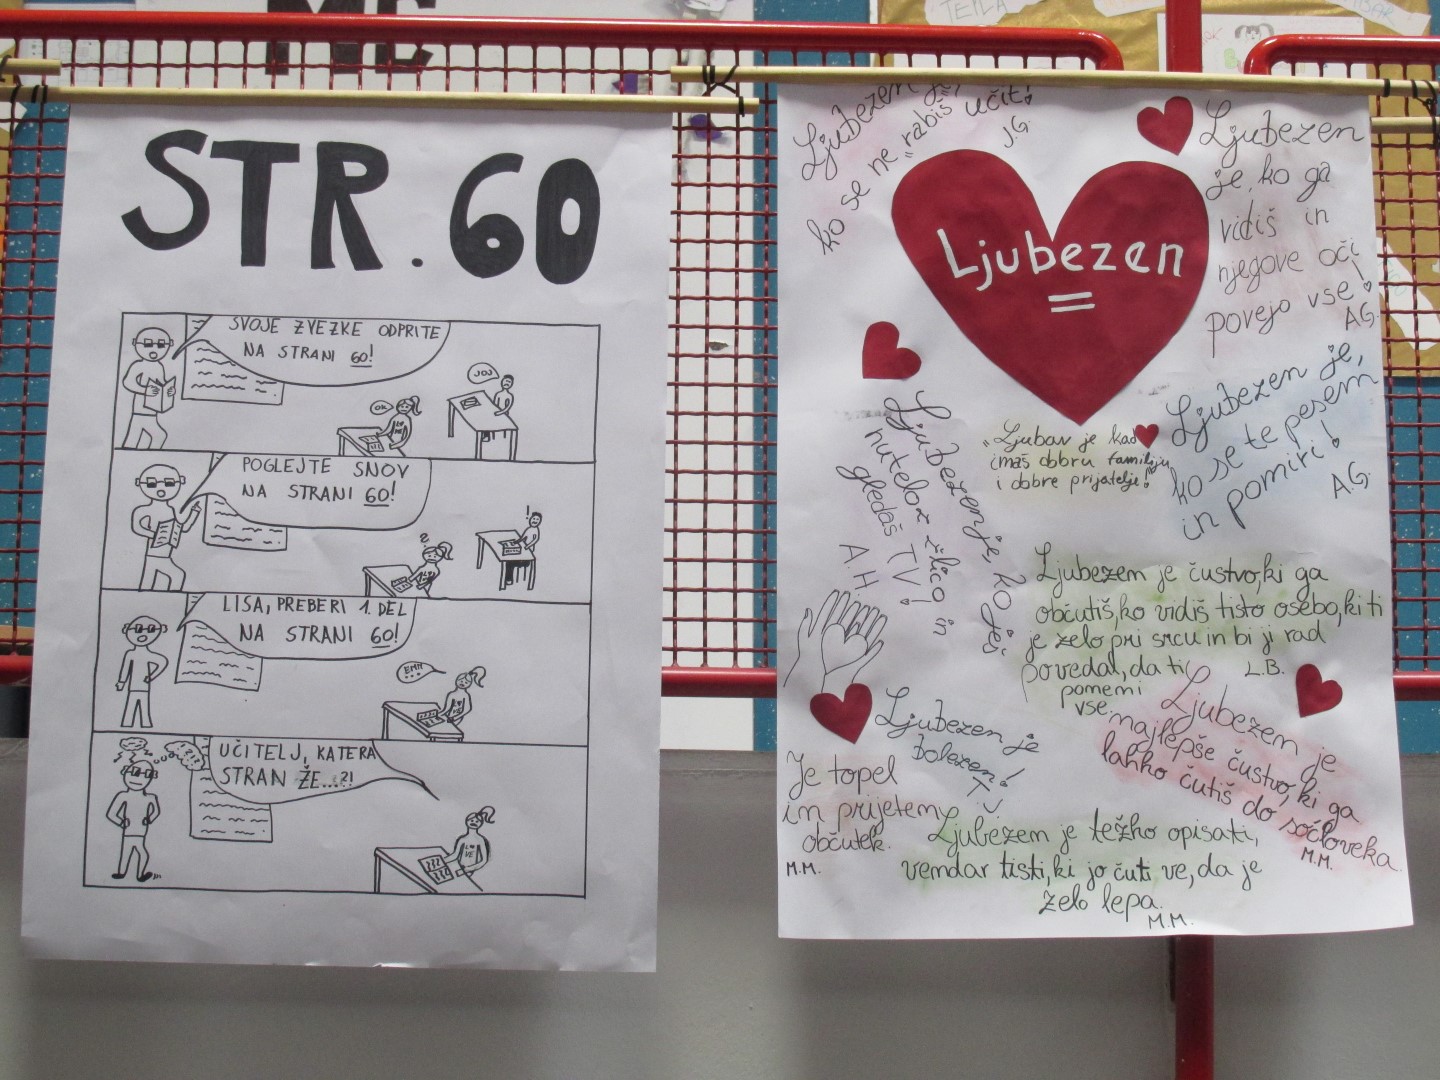 STR. 60
SVOJE ZVEZKE ODPRITE
NA STRANI 60!
OK
JOJ
POGLEJTE SNOV
NA STRANI 60!
?
!
LISA, PREBERI 1. DEL
NA STRANI 60!
EMM
...
UČITELJ, KATERA
STRAN ŽE...?!
LO
VE
Ljubezen je,
ko se ne „rabiš“ učit!
J.G.
Ljubezen
=
Ljubezen
je, ko ga
vidiš in
njegove oči
povejo vse!
A.G.
Ljubezen je,
ko se te pesem
in pomiri!
A.G.
„Ljubav je kad
imaš dobru familiju
i dobre prijatelje!“
Ljubezen je, ko ješ
nutelo z žlico in
gledaš TV!
A.H.
Ljubezen je čustvo, ki ga
občutiš, ko vidiš tisto osebo, ki ti
je zelo pri srcu in bi ji rad
povedal, da ti
pomeni
vse.
L.B.
Ljubezen je
bolezen!
T.J.
Ljubezen je
najlepše čustvo, ki ga
lahko čutiš do sočloveka.
M.M.
Je topel
in prijeten
občutek.
M.M.
Ljubezen je težko opisati,
vendar tisti, ki jo čuti ve, da je
zelo lepa.
M.M.